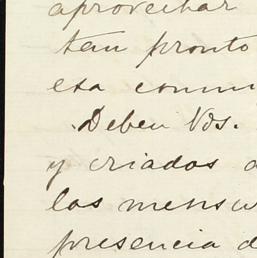 aprovechar
tan pronto
esa comun
Deben Vds.
y criados
los mensu
presencia d